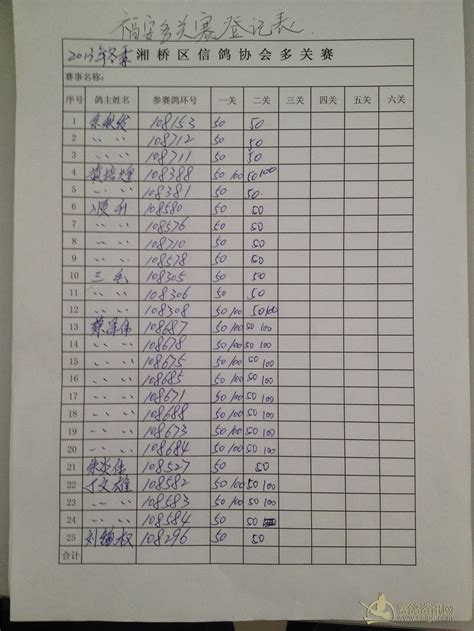 福安多关赛登记表
2013年冬季 湘桥区信鸽协会多关赛
赛事名称:
序号 鸽主姓名 参赛鸽环号 一关 二关 三关 四关 五关 六关
1 108153 50 50
2 〃 〃 108712 50 50
3 〃 〃 108711 50 50
4 108388 50 100 50 100
5 〃 〃 108381 50 50
6 顺升 108580 50 50
7 〃 〃 108576 50 50
8 〃 〃 108710 50 50
9 〃 〃 108578 50 50
10 三毛 108305 50 50
11 〃 〃 108306 50 50
12 〃 〃 108308 50 100 50 100
13 蔡泽伟 108687 50 100 50 100
14 〃 〃 108678 50 100 50 100
15 〃 〃 108675 50 100 50 100
16 〃 〃 108685 50 100 50 100
17 〃 〃 108671 50 100 50 100
18 〃 〃 108688 50 100 50 100
19 〃 〃 108673 50 100 50 100
20 〃 〃 108684 50 100 50 100
21 108527 50 50
22 丁文雄 108582 50 100 50 100
23 〃 〃 108583 50 100 50 100
24 〃 〃 108584 50 50
25 刘镇权 108296 50 50
合计